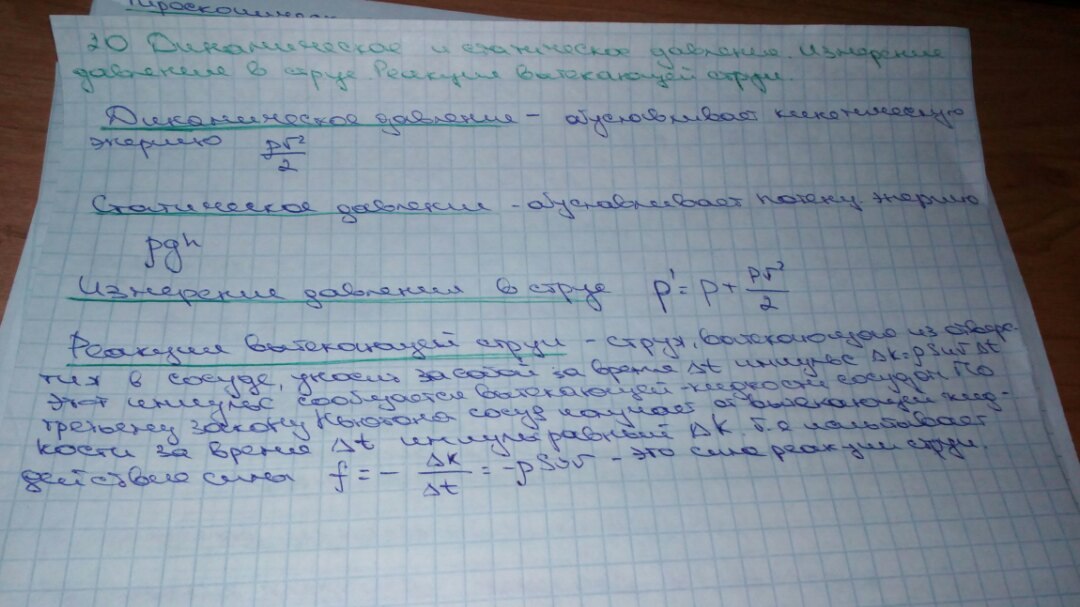 20 Динамическое и статическое давление. Измерение
давления в струе Реакция вытекающей струи.
Динамическое давление - обуславливает кинетическую
энергию ρv²/2
Статическое давление - обуславливает потенц. энергию
ρgh
Измерение давления в струе p' = p + ρv²/2
Реакция вытекающей струи - струя, вытекающая из отверс-
тия в сосуде, уносит за собой за время Δt импульс ΔK=ρSvvΔt
Этот импульс сообщается вытекающей жидкости сосудом По
третьему закону Ньютона сосуд получает от вытекающей жид-
кости за время Δt импульс равный ΔK т.е испытывает
действие силы f = - ΔK/Δt = -ρSvv - это сила реакции струи